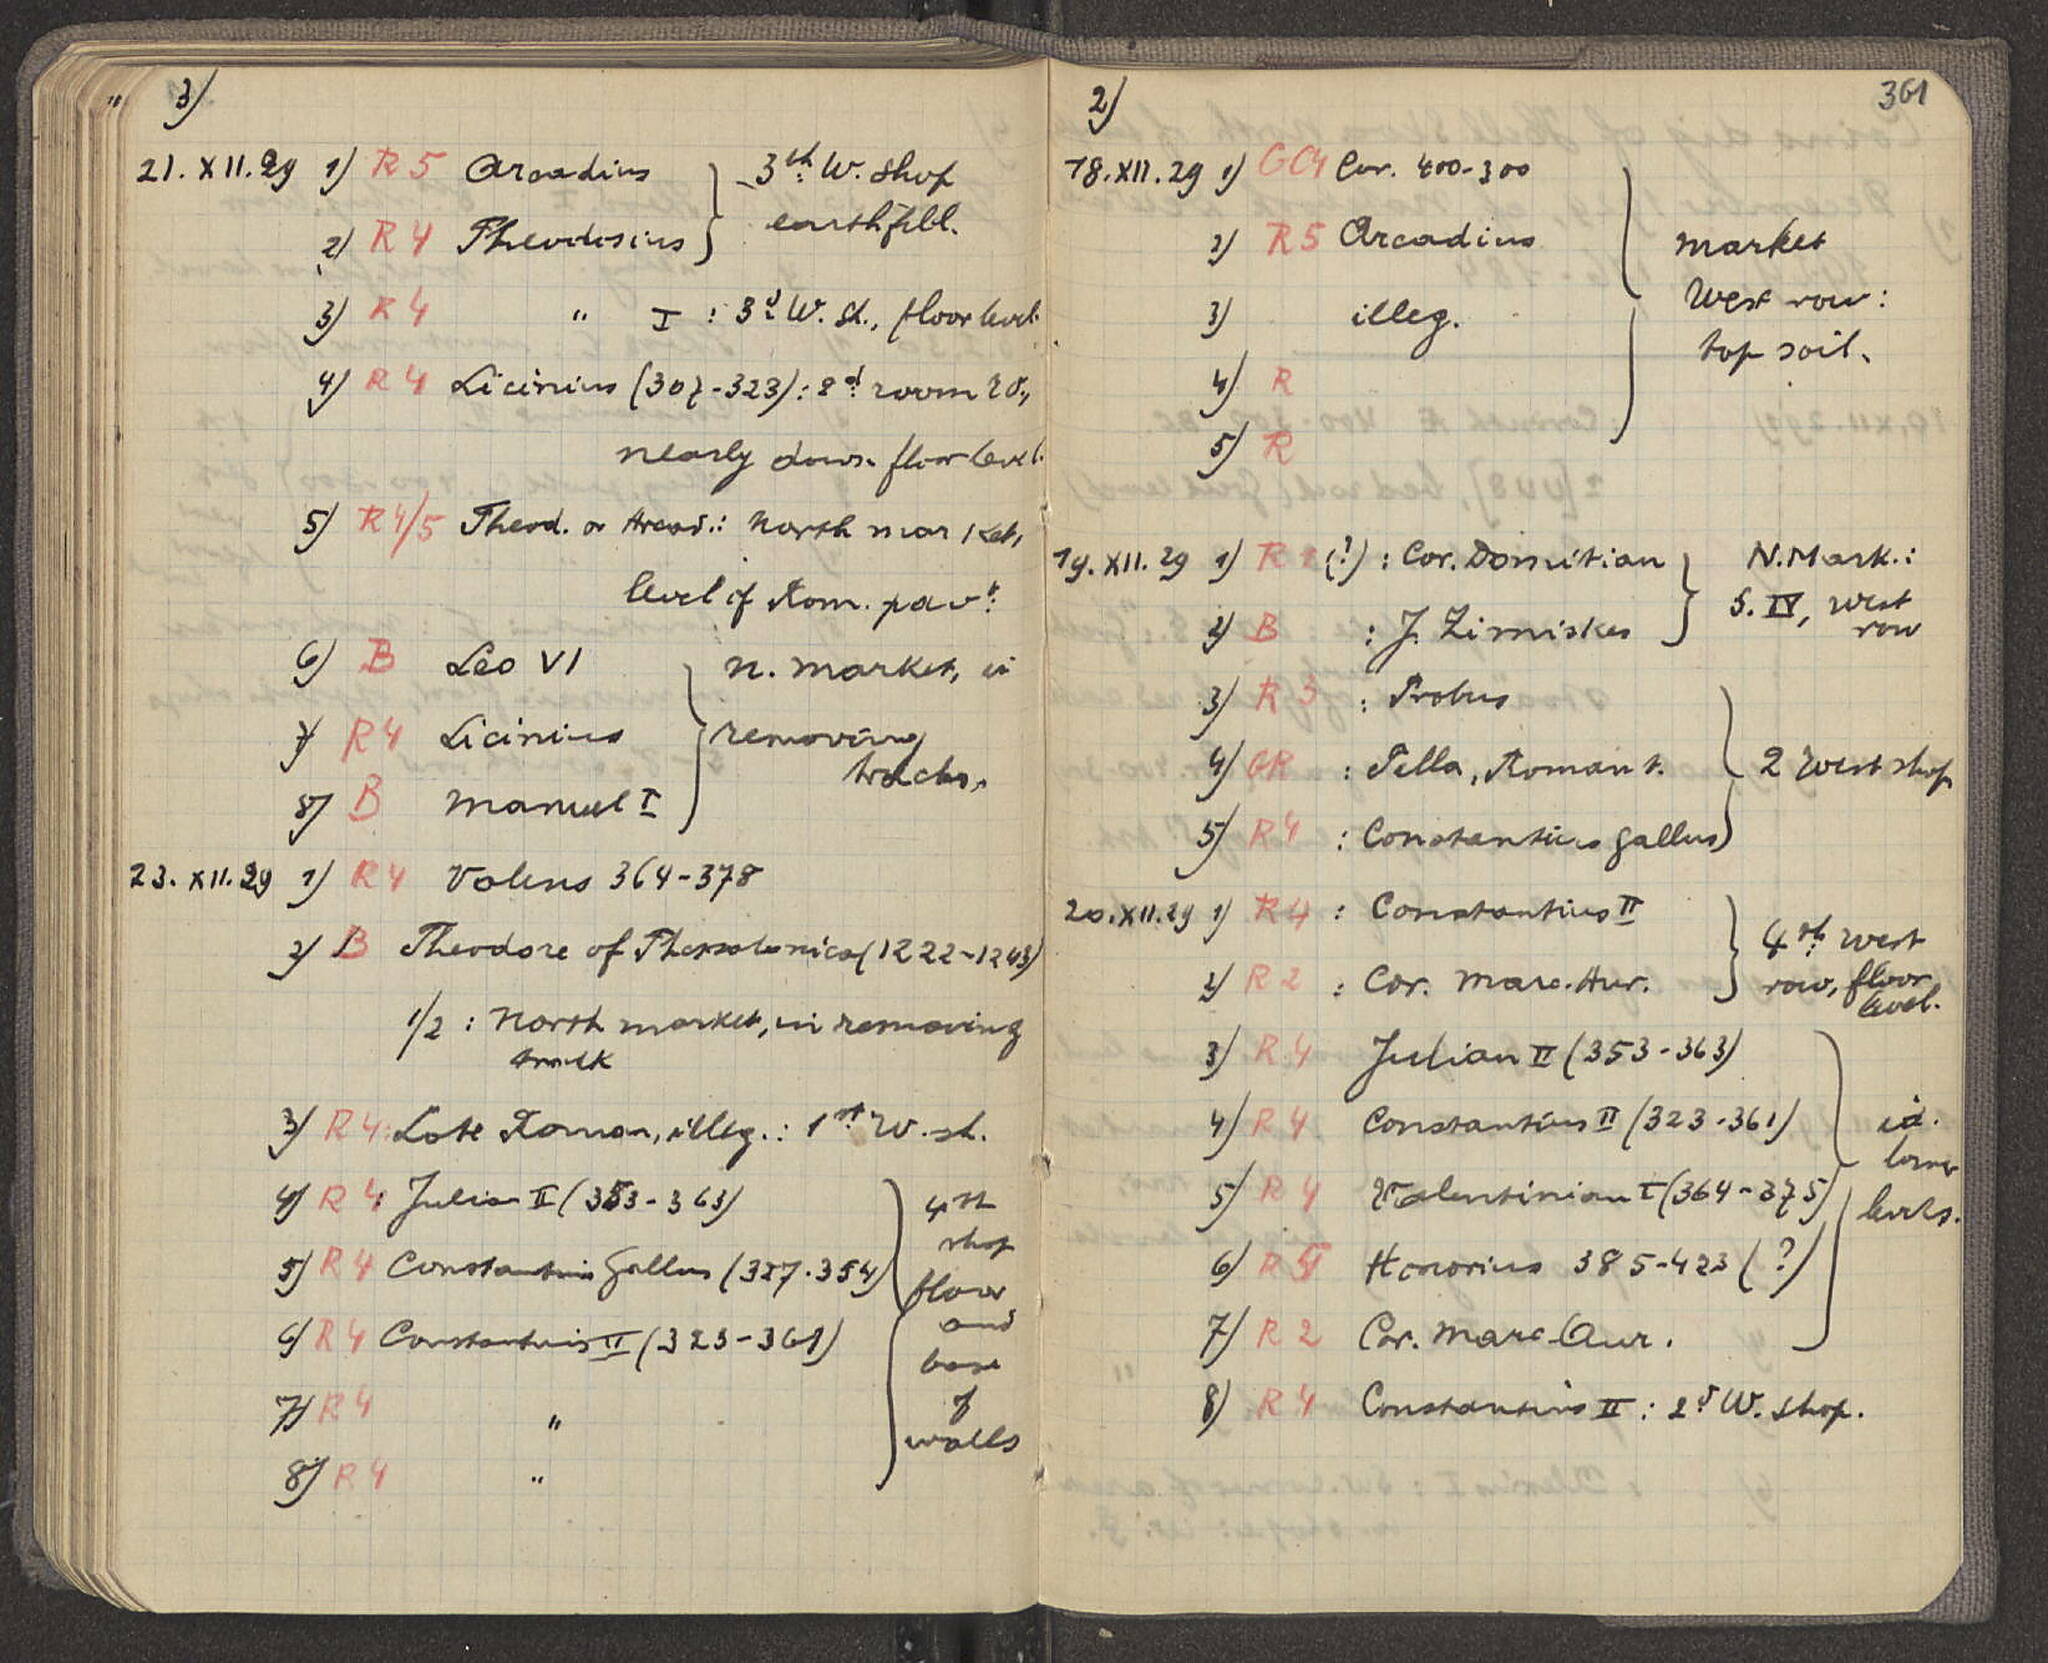 3)
21. XII. 29 1) R 5 Arcadius } 3th W. Shop
2) R 4 Theodosius } earthfill.
3) R 4 " I : 3d W. Sh., floor level.
4) R 4 Licinius (307-323): 2d room W.,
nearly down floor level.
5) R 4/5 Theod. or Arcad.: North market,
level of Rom. pavt.
6) B Leo VI } N. Market, in
7) R 4 Licinius } removing
tracks.
8) B Manuel I
23. XII. 29 1) R 4 Valens 364-378
2) B Theodore of Thessalonica (1222-1243)
1/2 : North market, in removing
track
3) R 4: Late Roman, illeg.: 1st W. sh.
4) R 4: Julian II (353-363) } 4th
shop
5) R 4 Constantius Gallus (327-354)
floor
and
6) R 4 Constantius II (323-361)
base
7) R 4 " of
walls
8) R 4 "
2) 361
18. XII. 29 1) GC4 Cor. 400-300
2) R 5 Arcadius } market
3) illeg. West row:
top soil.
4) R
5) R
19. XII. 29 1) R 1 (?) : Cor. Domitian } N. Mark.:
S. IV, West
2) B : J. Zimiskes row
3) R 3 : Probus
4) GR : Pella, Roman t. } 2 West shop
5) R 4 : Constantius Gallus
20. XII. 29 1) R 4 : Constantius II } 4th West
2) R 2 : Cor. Marc. Aur. row, floor
level.
3) R 4 Julian II (353-363)
4) R 4 Constantius II (323-361) } id.
lower
5) R 4 Valentinian I (364-375) levels.
6) R 5 Honorius 385-423 (?)
7) R 2 Cor. Marc Aur.
8) R 4 Constantius II : 2d W. Shop.